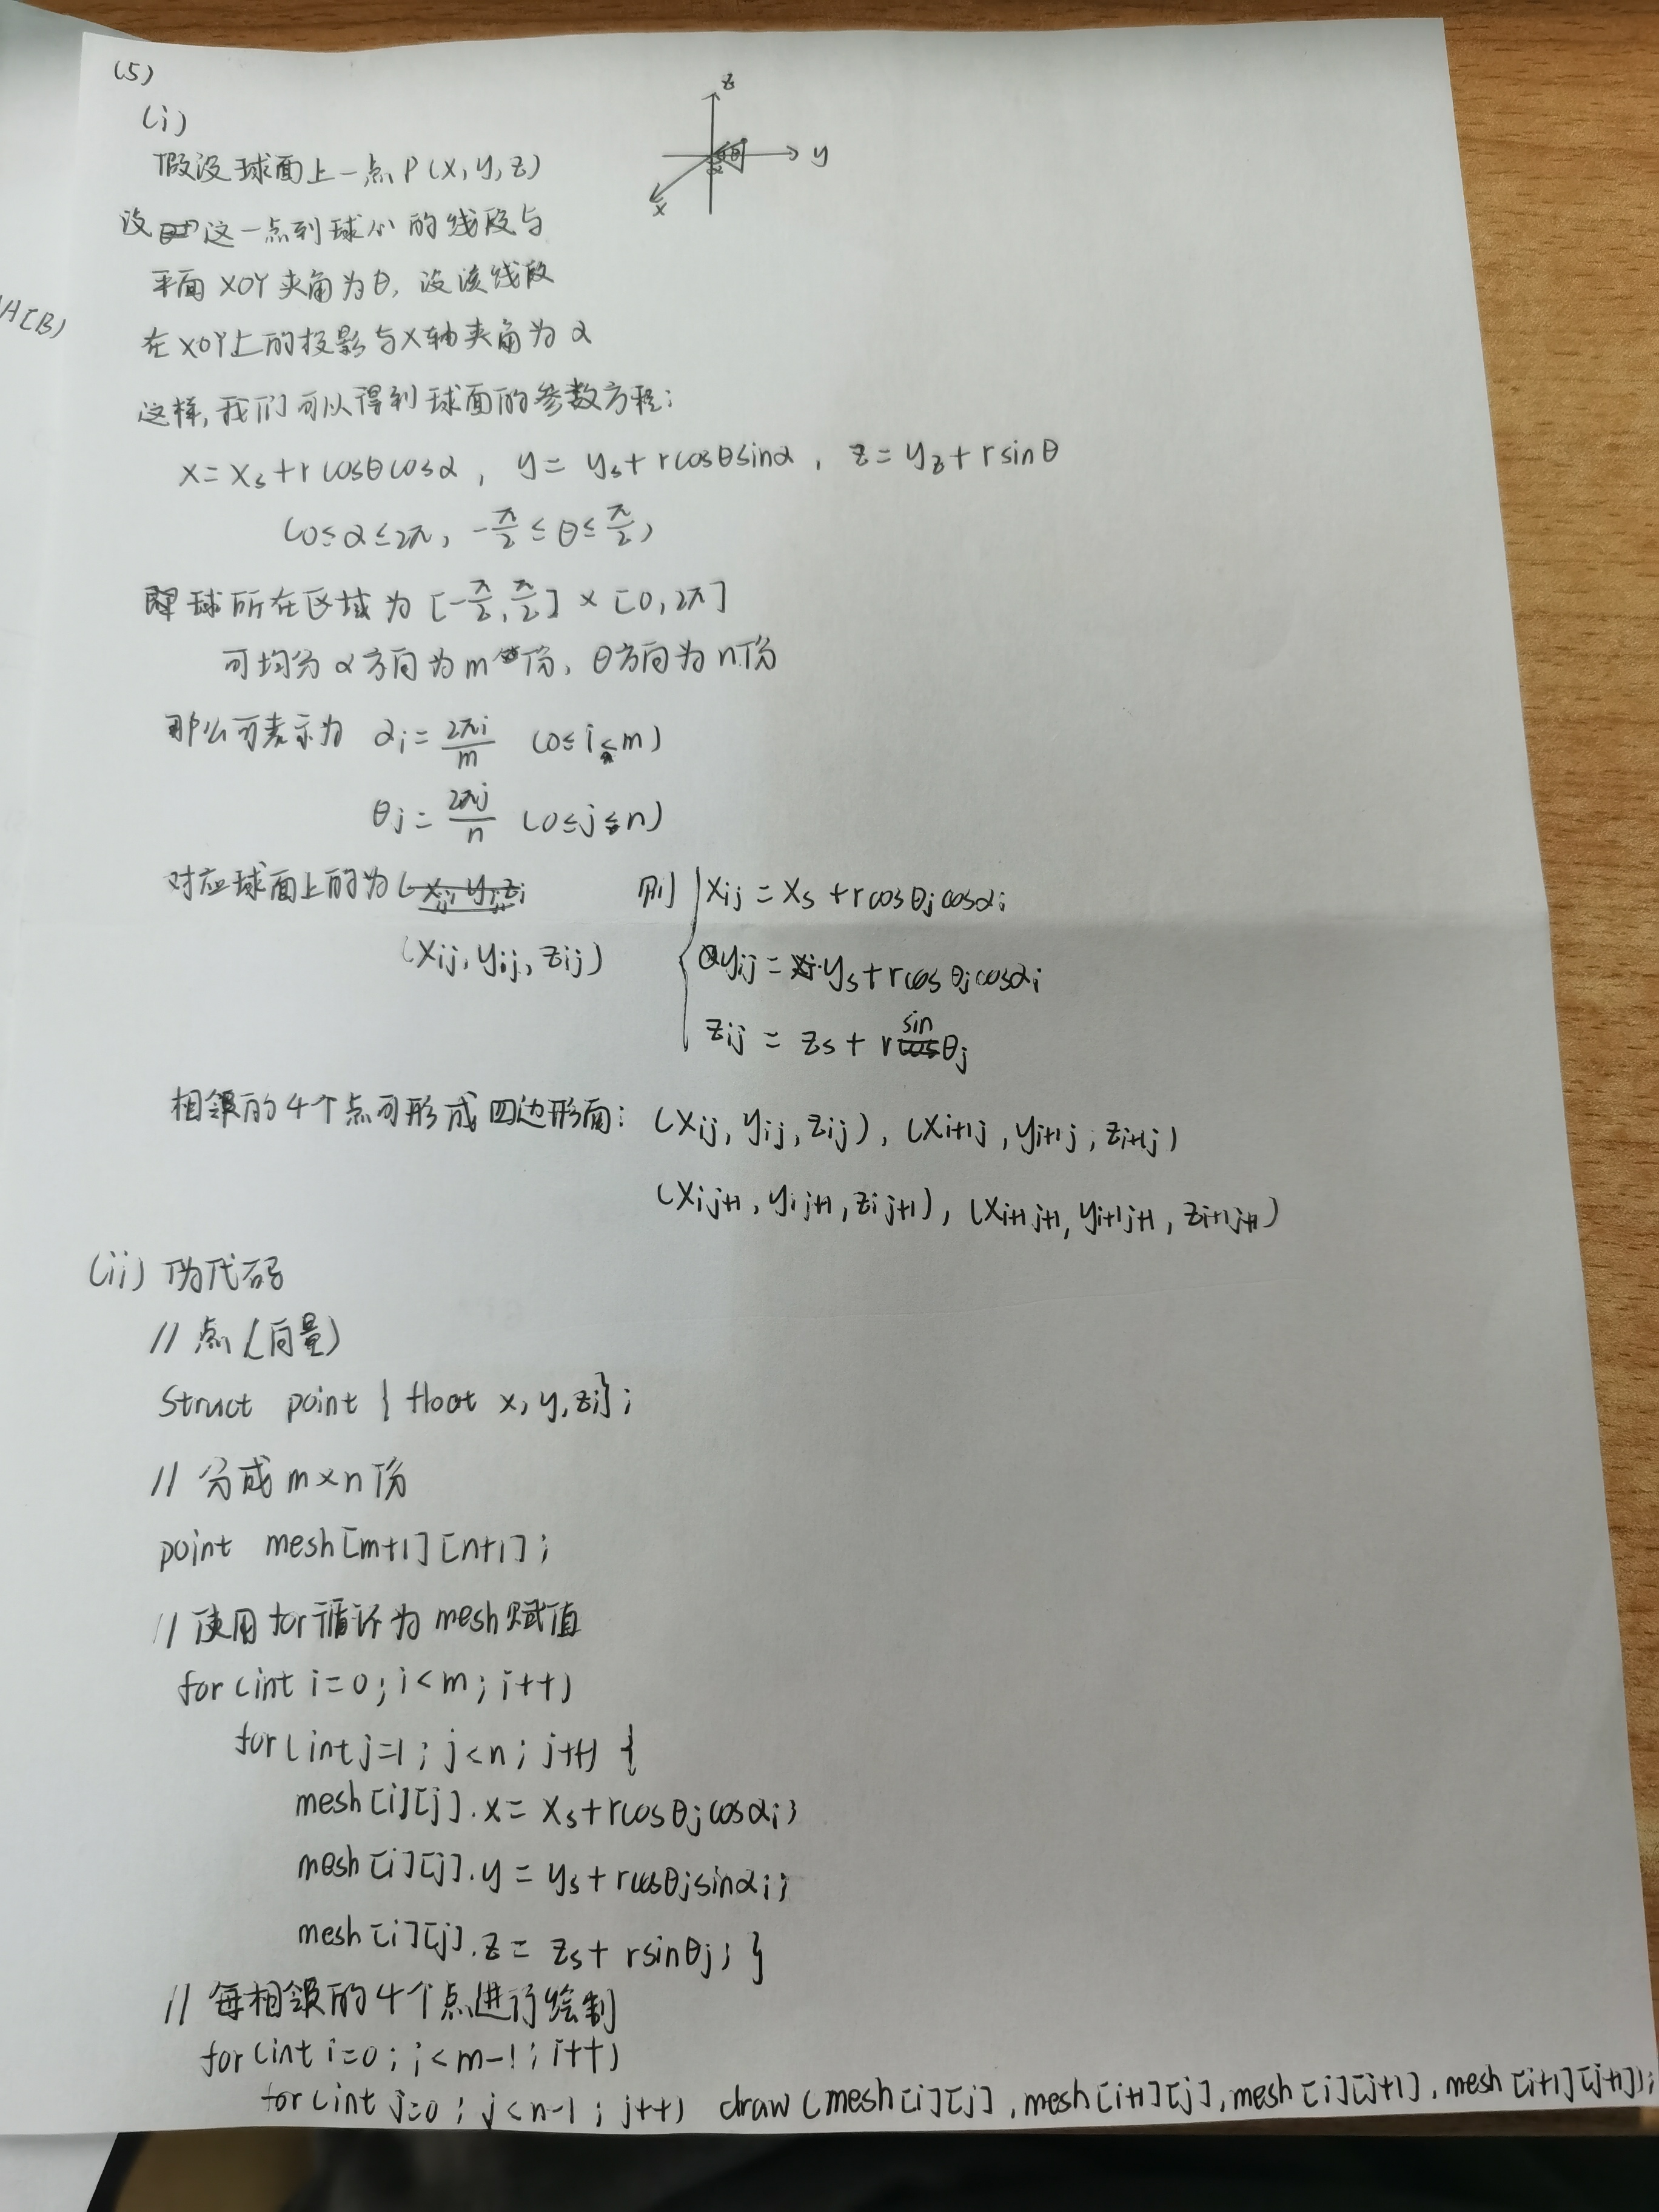 (5)
(i)
z
y
x
θ
α
假设球面上一点P(x,y,z)
设这一点到球心的线段与
平面XOY夹角为θ,设该线段
在XOY上的投影与X轴夹角为α
这样,我们可以得到球面的参数方程:
x=xs+rcosθcosα, y=ys+rcosθsinα, z=yz+rsinθ
(0≤α≤2π, -π/2≤θ≤π/2)
即球所在区域为[-π/2,π/2]×[0,2π]
可均分α方向为m份,θ方向为n份
那么可表示为 αi=2πi/m (0≤i≤m)
θj=2πj/n (0≤j≤n)
对应球面上的为(xij,yij,zi
(xij,yij,zij)
则 xij=xs+rcosθjcosαi
yij=ys+rcosθjcosαi
zij=zs+rsinθj
相邻的4个点可形成四边形面:(xij,yij,zij),(xi+1j,yi+1j,zi+1j)
(xij+1,yij+1,zij+1),(xi+1j+1,yi+1j+1,zi+1j+1)
(ii) 伪代码
// 点(向量)
Struct point { float x,y,z;};
// 分成m×n份
point mesh[m+1][n+1];
// 使用for循环为mesh赋值
for(int i=0;i<m;i++)
for(int j=1;j<n;j++) {
mesh[i][j].x=xs+rcosθjcosαi;
mesh[i][j].y=ys+rcosθjsinαi;
mesh[i][j].z=zs+rsinθj; }
// 每相邻的4个点进行绘制
for(int i=0;i<m-1;i++)
for(int j=0;j<n-1;j++) draw(mesh[i][j],mesh[i+1][j],mesh[i][j+1],mesh[i+1][j+1]);
A[B)